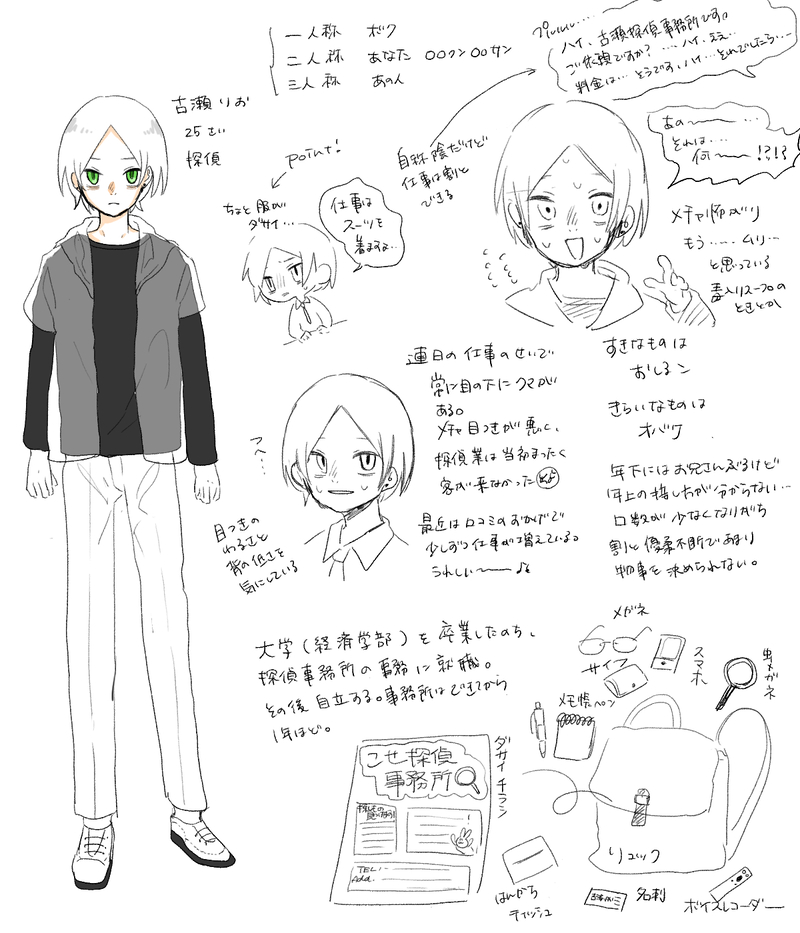 一人称 ボク
二人称 あなた 〇〇クン〇〇サン
三人称 あの人
古瀬りお
25さい
探偵
point!
ちょと服が
ダサイ…
仕事は
スーツを
着ますよ…
自称陰だけど
仕事は割と
できる
プルルルル…
ハイ、古瀬探偵事務所です。
ご依頼ですか? ……ハイ、ええ…
料金は… そうです、ハイ… それでしたら…
あの〜〜 …
それは…
何〜〜 !?!?
メチャ怖がり
もう…… ムリ…
と思っている
毒入りスープの
ときとか
連日の仕事のせいで
常に目の下にクマが
ある。
メチャ目つきが悪く、
探偵業は当初まったく
客が来なかった
最近は口コミのおかげで
少しずつ仕事が増えている。
うれしい〜〜♪
すきなものは
おしるこ
きらいなものは
オバケ
年下にはお兄さんぶるけど
年上の接し方が分からない…
口数が少なくなりがち
割と優柔不断であり
物事を決められない。
つへ…
目つきの
わるさと
背の低さを
気にしている
大学(経済学部)を卒業したのち、
探偵事務所の事務に就職。
その後自立する。事務所はできてから
1年ほど。
メガネ
サイフ
スマホ
虫メガネ
メモ帳ペン
リュック
ダサイチラシ
こせ探偵
事務所
TEL:
Add.
はんかち
ティッシュ
名刺
ボイスレコーダー